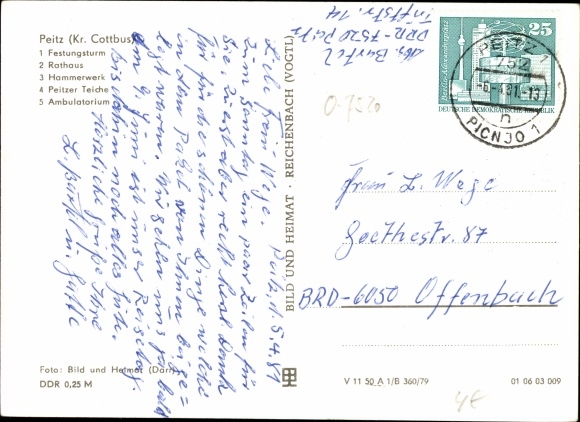 Peitz (Kr. Cottbus)
1 Festungsturm
2 Rathaus
3 Hammerwerk
4 Peitzer Teiche
5 Ambulatorium
Foto: Bild und Heimat (Darr)
DDR 0,25 M
Peitz, d. 5.4.81
Liebe Frau Wege.
Zum Sonntag ein paar Zeilen für
Sie, zuerst aber recht herzl. Dank
für die schönen Dinge welche
in dem Paket von Ihnen beige=
legt waren. Wir sehen uns ja bald
am 9. Juni ist unser Reisetag.
bis dahin noch alles Gute.
Herzliche Grüße Ihre
L. Bartel u. Gatte
BILD UND HEIMAT · REICHENBACH (VOGTL)
Abs. Bartel
DDR-7520 Peitz
Triftstr. 14
O-7520
25
Berlin-Alexanderplatz
DEUTSCHE DEMOKRATISCHE REPUBLIK
PEITZ
752
-6.-4.81.-13
n
PICNJO 1
Frau L. Wege
Goethestr. 87
BRD-6050 Offenbach
V 11 50 A 1/B 360/79
01 06 03 009
4€